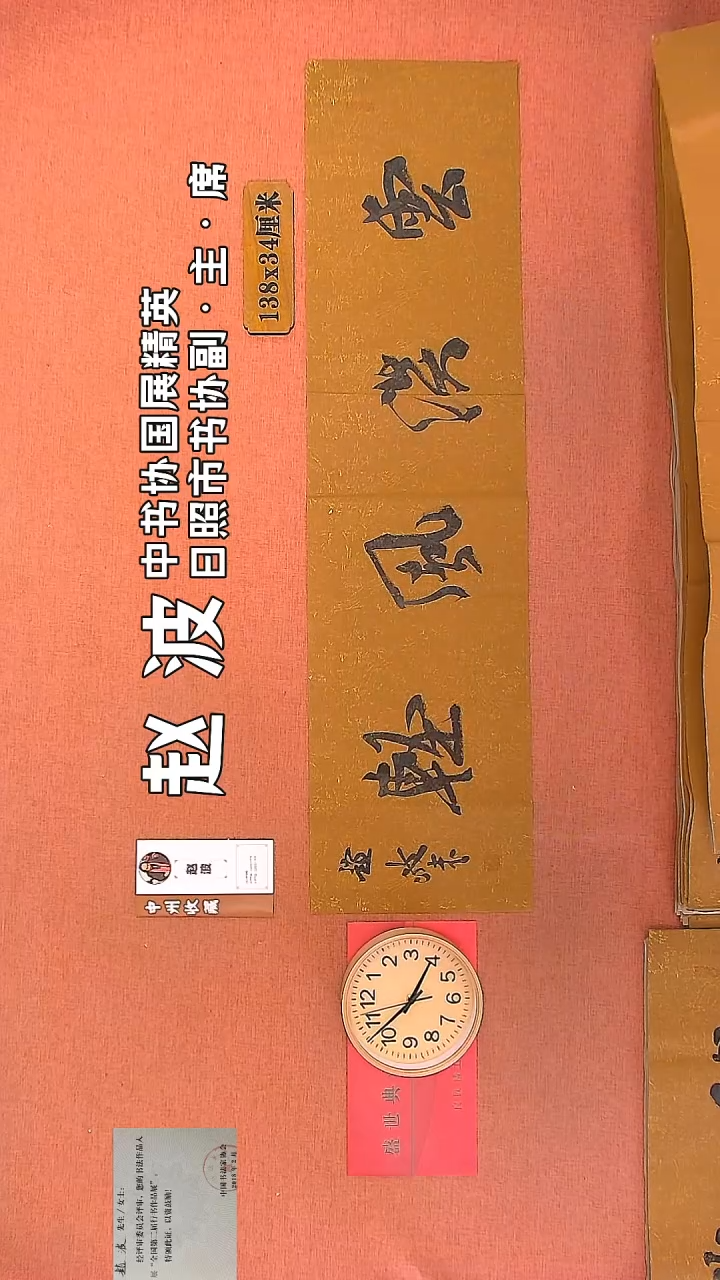 138x34厘米
中书协国展精英
日照市书协副·主·席
赵波
雲淡風輕
赵波书
赵波
中州收藏
盛世典
12 1 2 3 4 5 6 7 8 9 10 11
赵波 先生/女士:
经评审委员会评审，您的书法作品入
“全国第二届行书作品展”，
特颁此证，以资鼓励!
中国书法家协会